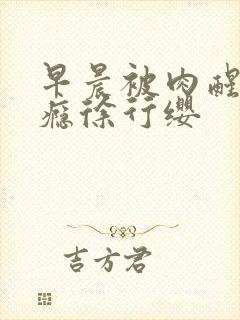 早晨被肉醒
瘾徐行缨
吉方君